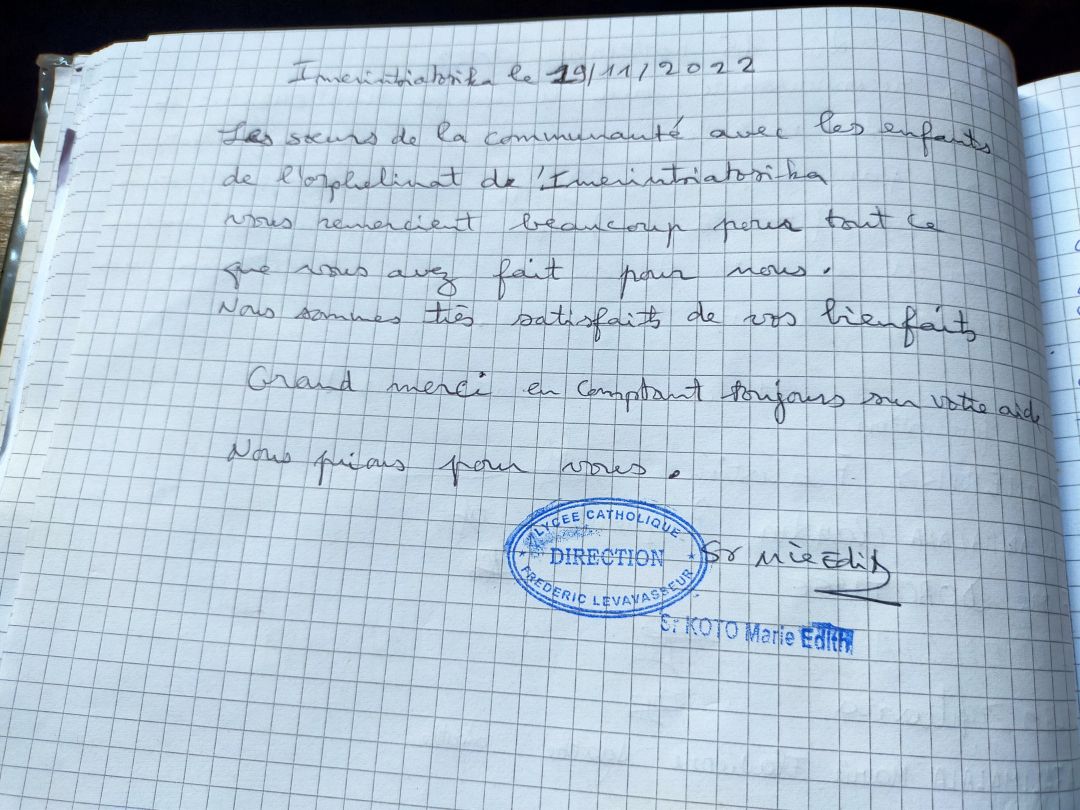 Imerintsiatosika le 19/11/2022
Les sœurs de la communauté avec les enfants
de l'orphelinat de l'Imerintsiatosika
vous remercient beaucoup pour tout ce
que vous avez fait pour nous.
Nous sommes très satisfaits de vos bienfaits
Grand merci en comptant toujours sur votre aide
Nous prions pour vous.
LYCEE CATHOLIQUE
DIRECTION
FREDERIC LEVAVASSEUR
Sr Mie Edith
Sr KOTO Marie Edith